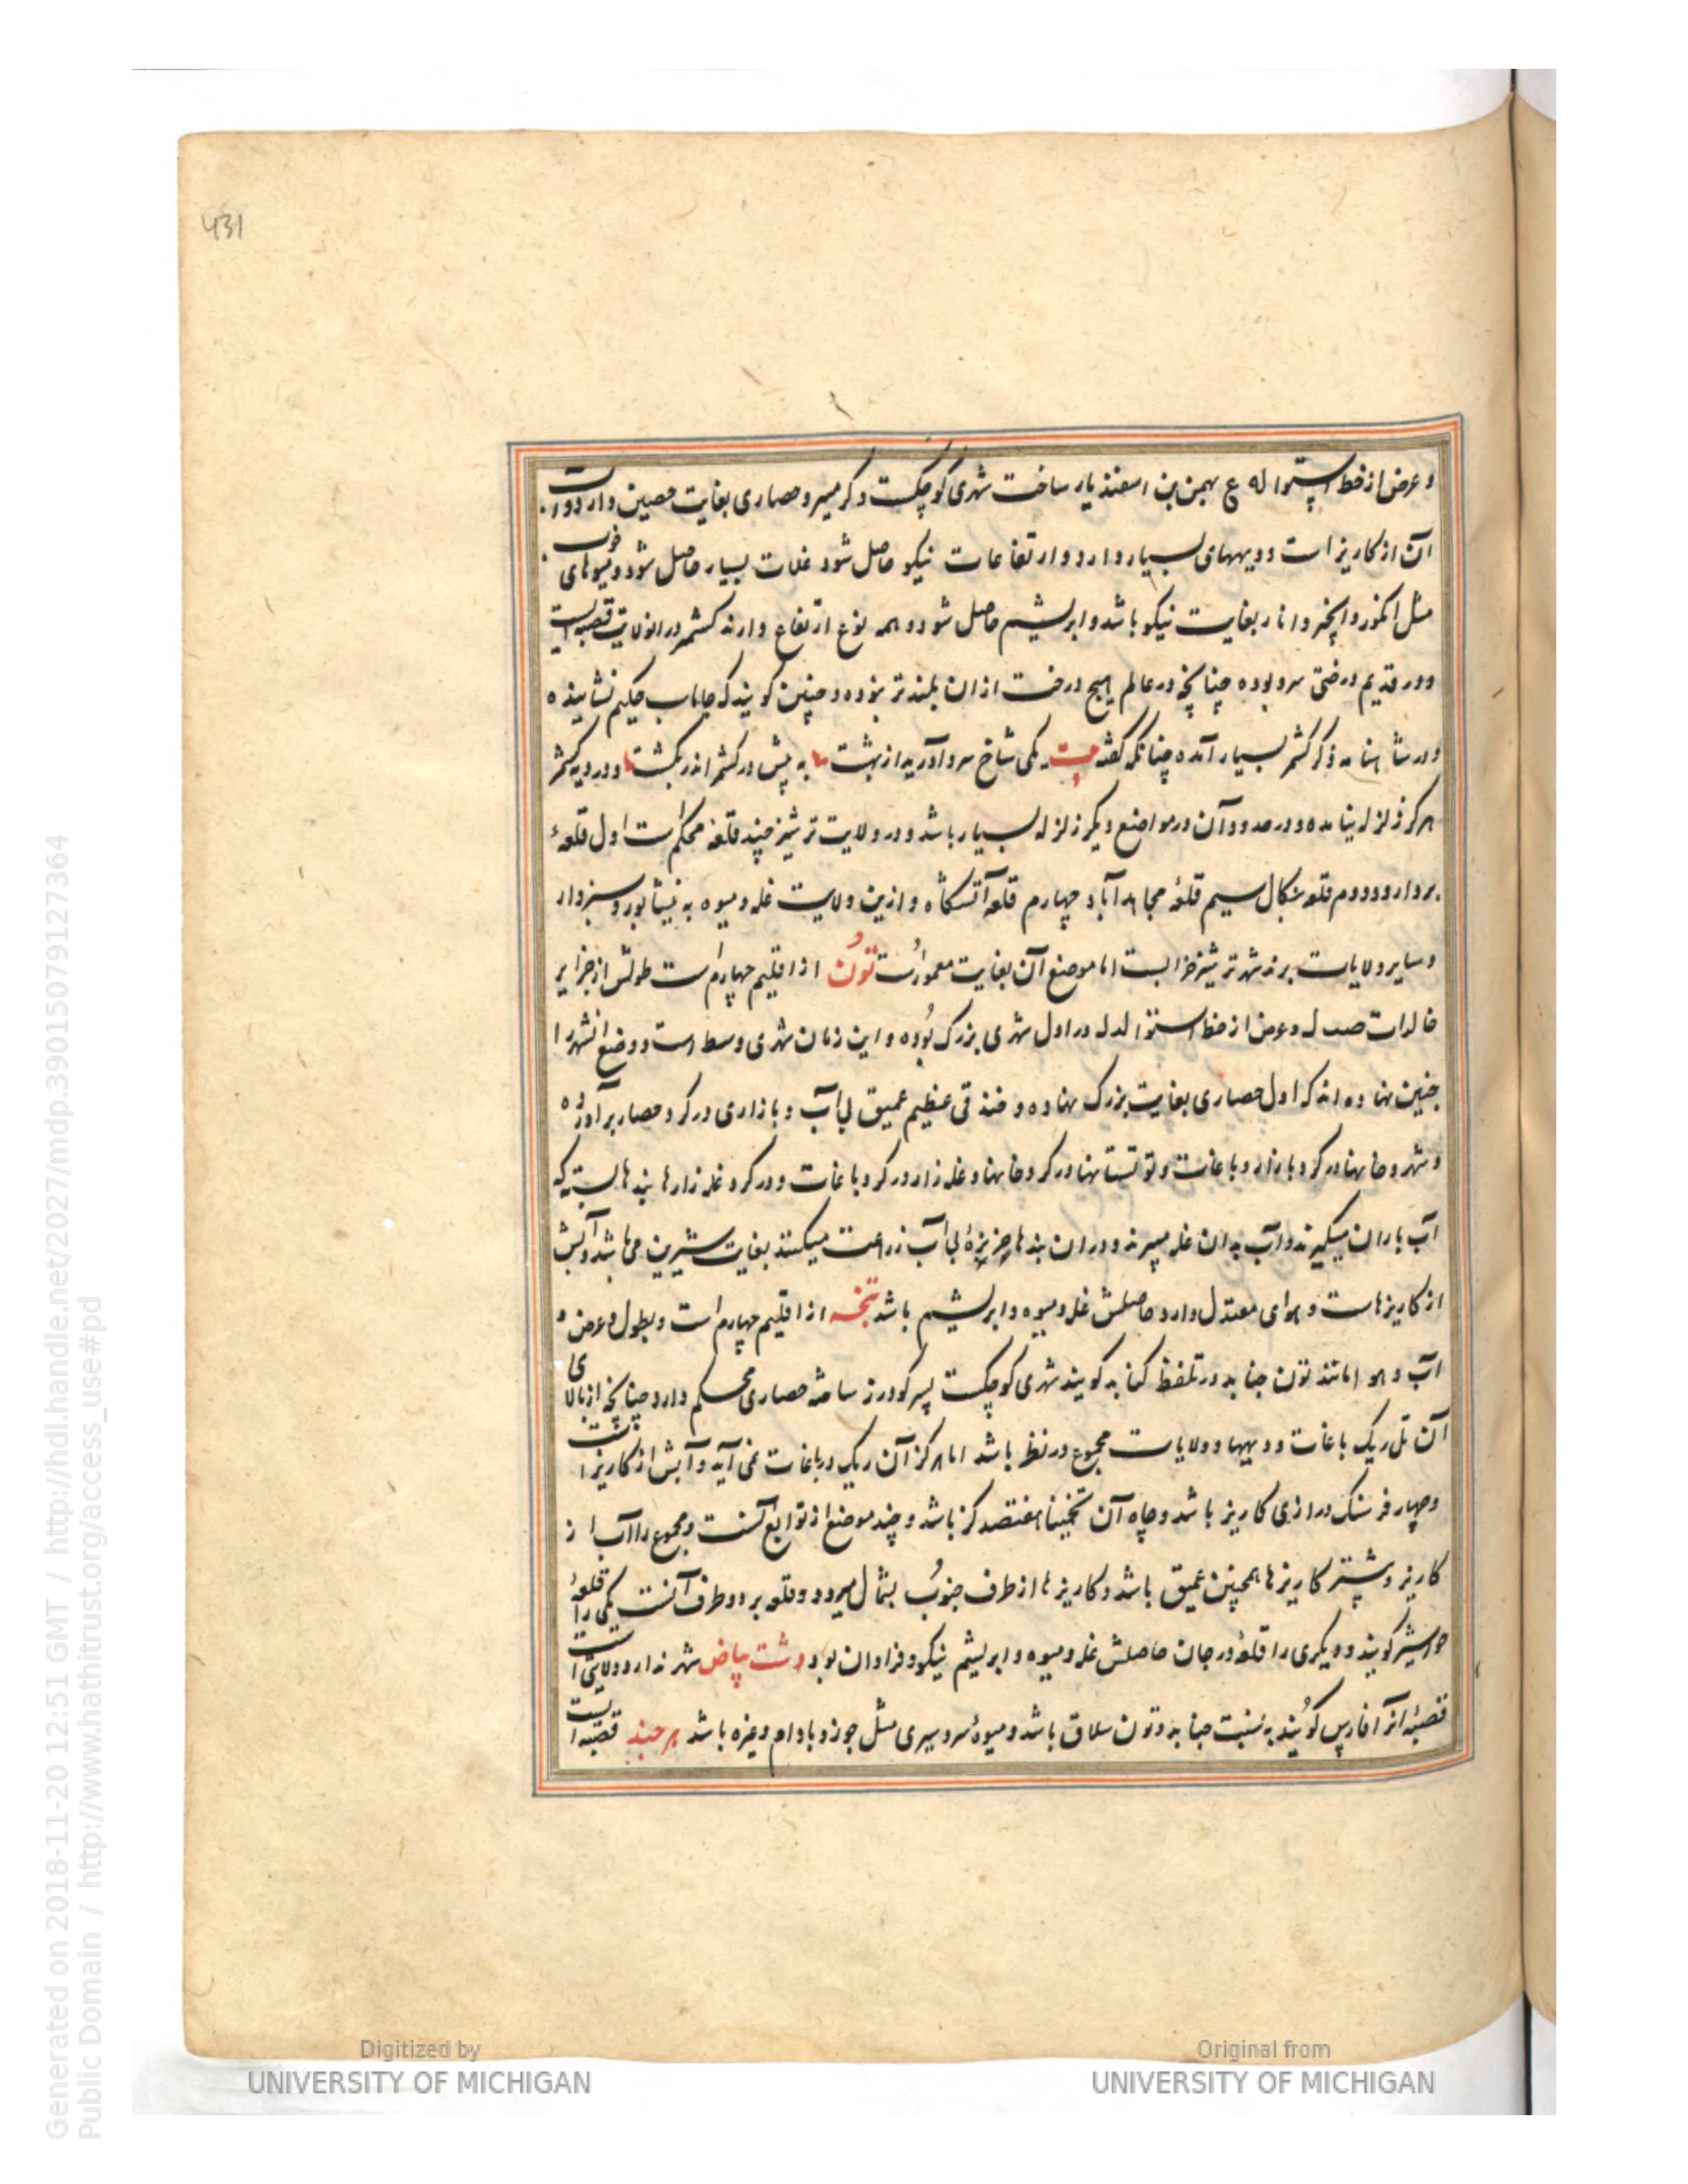 431
و عرض از خط استوا له ع بهمن بن اسفندیار ساخت شهری کوچکست و کرمسیر و حصاری بغایت حصین دارد و آب
آن از کاریز است و دیههای بسیار دارد و ارتفاعات نیکو حاصل شود غلات بسیار حاصل شود و میوهای خوب
مثل انکور و انجیر و انار بغایت نیکو باشد و ابریشیم حاصل شود و همه نوع ارتفاع دارند کشمر در انولایت قصبه ایست
و در قدیم درختی سرو بوده چنانچه در عالم هیچ درخت از ان بلندتر نبوده و چنین کویند که جاماسب حکیم نشاینده
و در شاهنامه ذکر کشمر بسیار آمده چنانکه کفته بیت یکی شاخ سرو آورید از بهشت به پیش در کشمر اندر بکشت و در دیه کشمر
هرکز زلزله نیامده و در حدود آن در مواضع دیکر زلزله بسیار باشد و در ولایت ترشیز چند قلعه محکم است اول قلعهٔ
بردارود دوم قلعه میکال سیم قلعهٔ مجاهدآباد چهارم قلعه آتشکاه و ازین ولایت غله و میوه به نیشابور و سبزوار
و سایر ولایات برند شهر ترشیز خرابست اما موضع آن بغایت معمورست تون از اقلیم چهارم است طولش از جزایر
خالدات صب ل و عرض از خط استوا لد ل در اول شهری بزرک بوده و این زمان شهری وسط است و وضع انشهر را
چنین نهاده اند که اول حصاری بغایت بزرک نهاده و خندقی عظیم عمیق بی آب و بازاری در کرد حصار برآورده
و شهر و خانها در کرد بازار و باغات و توتستانها در کرد خانها و غله زار در کرد باغات و در کرد غله زارها بندها بسته که
آب باران میکیرند و آب بدان غله میبرند و دران بندها خربزهٔ بی آب زراعت میکنند بغایت شیرین می باشد و آبش
از کاریزهاست و هوای معتدل دارد حاصلش غله و میوه و ابریشیم باشد تنجه از اقلیم چهارم است و بطول و عرض و
آب و هوا مانند تون جنابد در تلفظ کنابد کویند شهری کوچکست پسر کودرز ساخته حصاری محکم دارد چنانچه از بالای
آن تل ریک باغات و دیهها و ولایات مجموع در نظر باشد اما هرکز آن ریک در باغات نمی آید و آبش از کاریز است
و چهار فرسنک درازی کاریز باشد و چاه آن تخمینا هفتصد کز باشد و چند موضع از توابع آنست و مجموع را آب از
کاریز و بیشتر کاریزها همچنین عمیق باشد و کاریزها از طرف جنوب بشمال میرود و دو قلعه بر دو طرف آنست یکی را قلعهٔ
خواشیر کویند و دیکری را قلعهٔ درجان حاصلش غله و میوه و ابریشم نیکو و فراوان بود دشت بیاض شهر ندارد و ولایتی است
قصبهٔ آنرا فارس کویند به نسبت جنابد و تون سلاق باشد و میوهٔ سردسیری مثل جوز و بادام و غیره باشد برجند قصبه ایست
Digitized by
UNIVERSITY OF MICHIGAN
Original from
UNIVERSITY OF MICHIGAN
Generated on 2018-11-20 12:51 GMT / http://hdl.handle.net/2027/mdp.39015079127364
Public Domain / http://www.hathitrust.org/access_use#pd